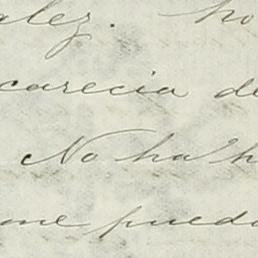 alez. no
carecia de
No ha h
me pued